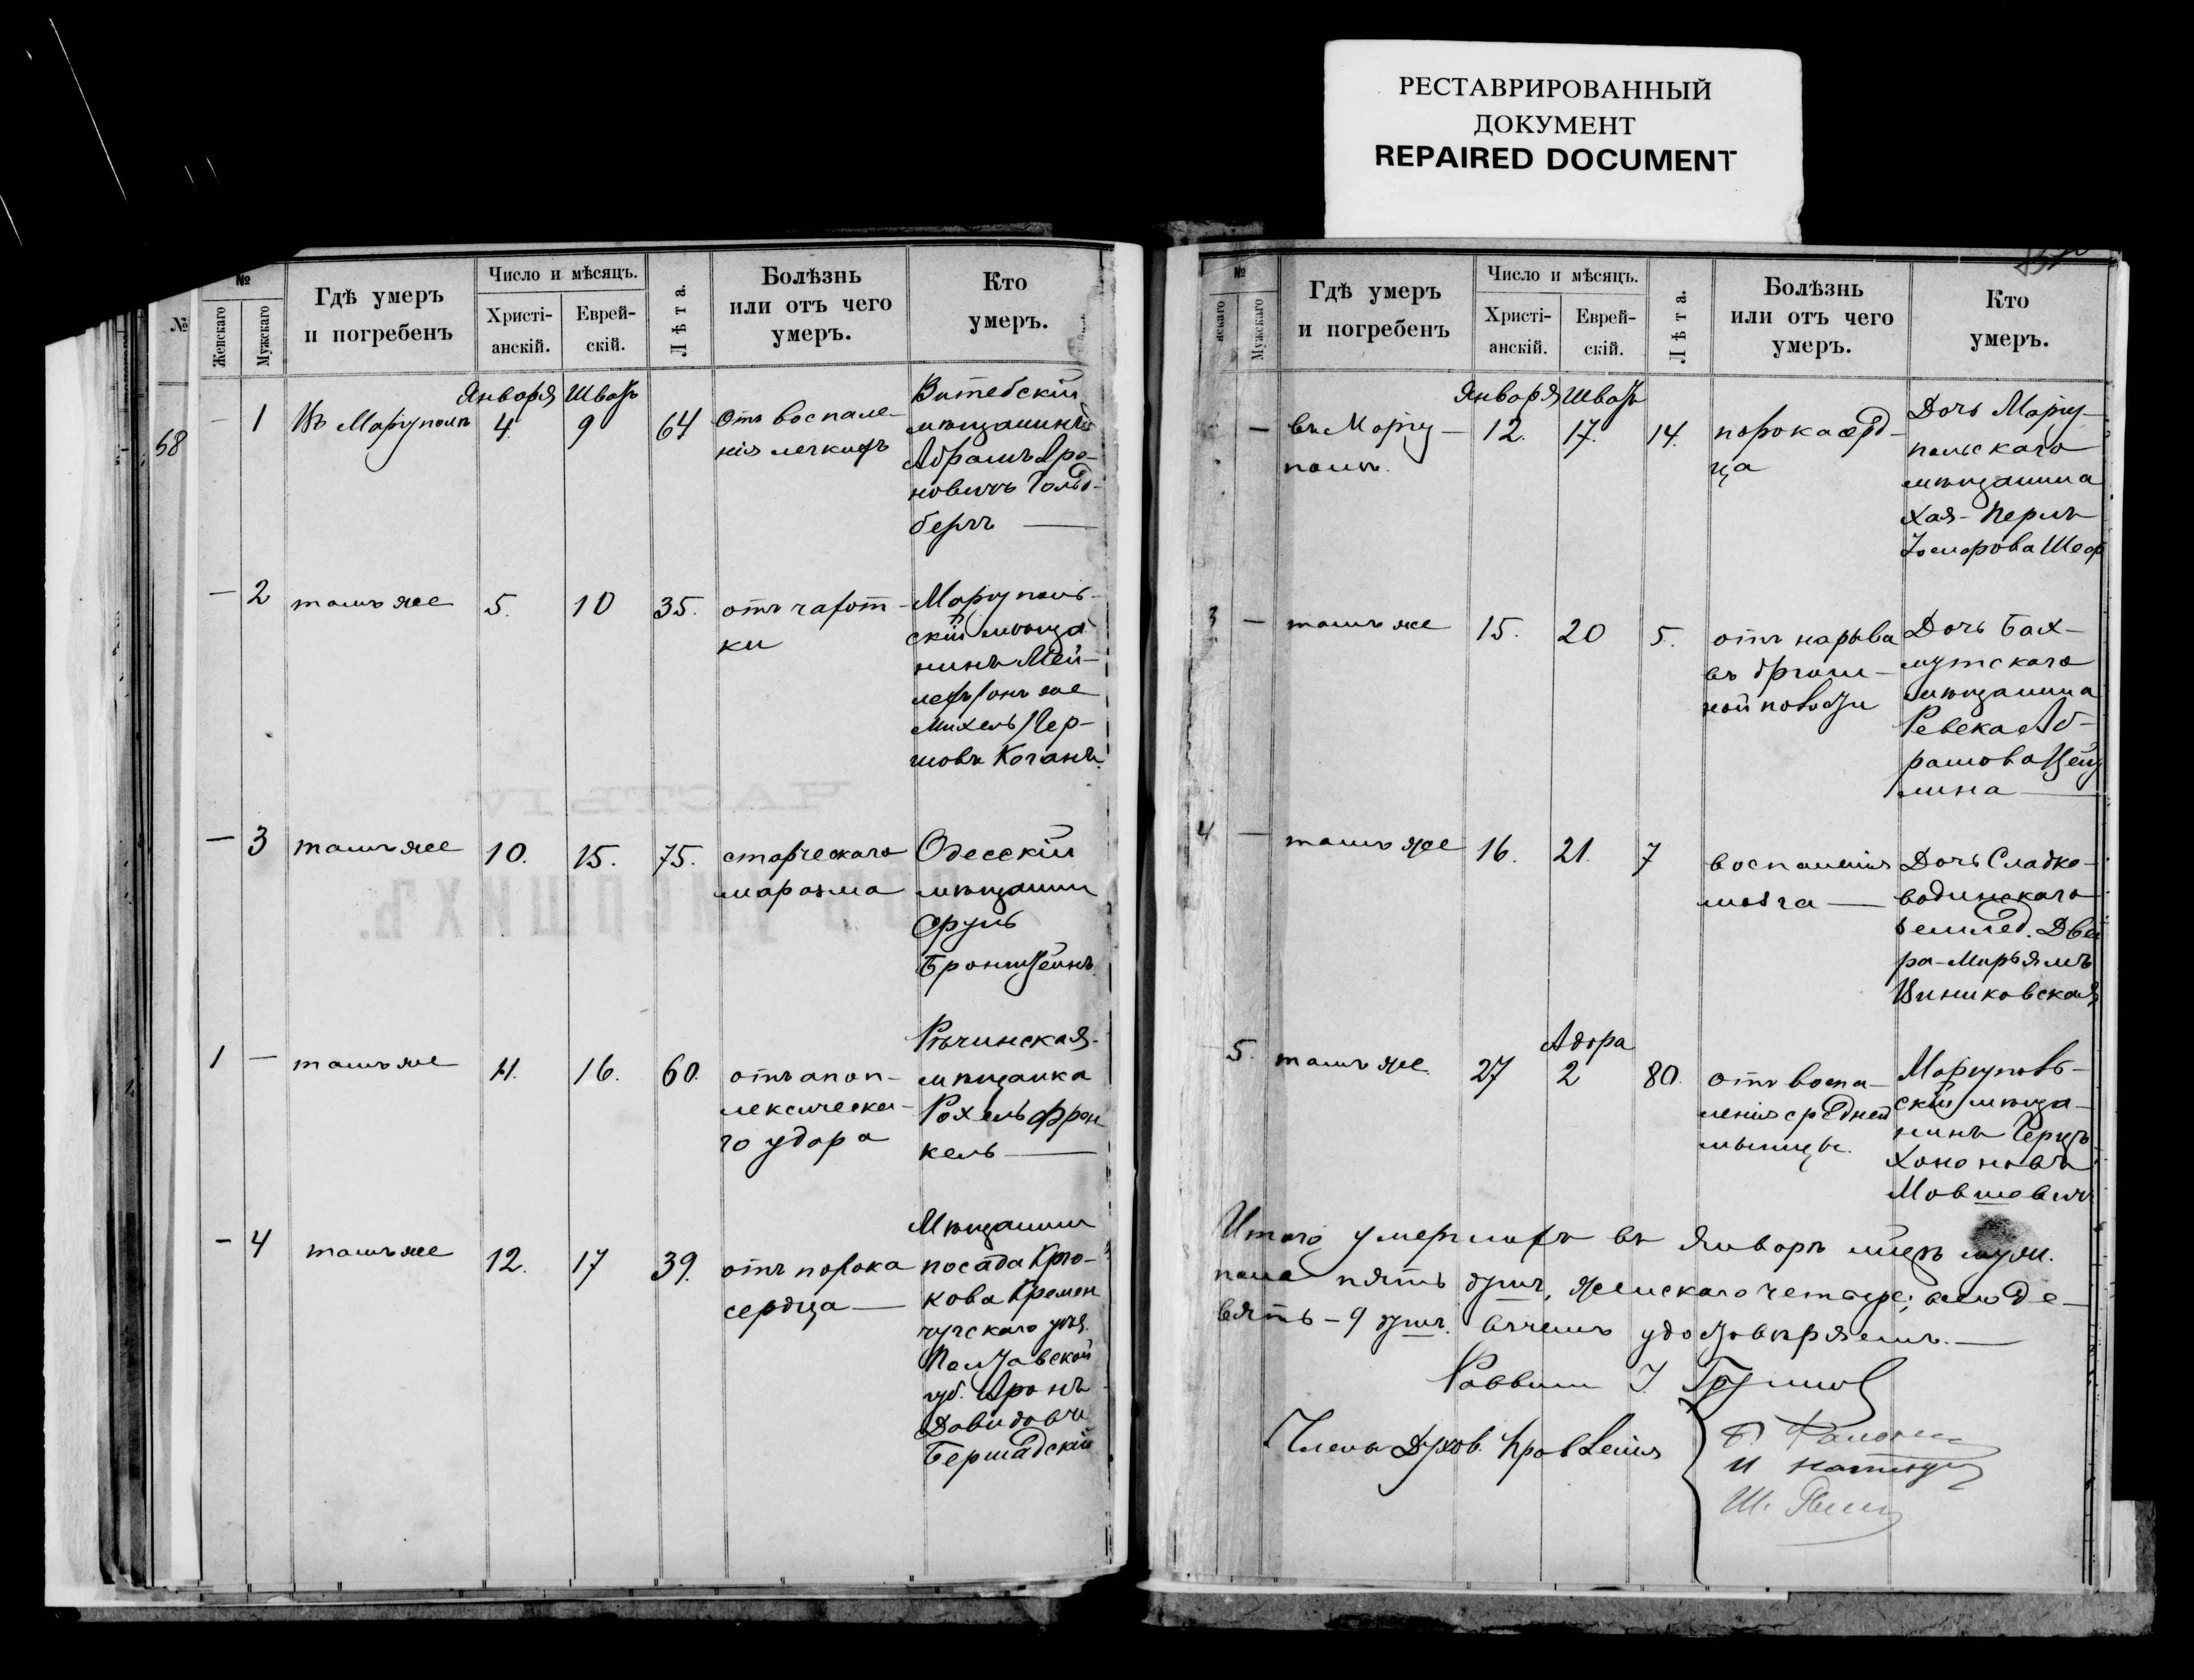 РЕСТАВРИРОВАННЫЙ
ДОКУМЕНТ
REPAIRED DOCUMENT
№
68
№
Женскаго
Мужскаго
Гдѣ умеръ
и погребенъ
Число и мѣсяцъ.
Христі-
анскій.
Еврей-
скій.
Лѣта.
Болѣзнь
или отъ чего
умеръ.
Кто
умеръ.
Января Шватъ
— 1 Въ Маріуполѣ 4. 9 64 Отъ воспале-
нія легкихъ
Витебскій
мѣщанинъ
Абрамъ Аро-
новичъ Гольд-
бергъ —
— 2 тамъ же 5. 10 35. отъ чахот-
ки
Маріуполь-
скій мѣща-
нинъ Мей-
лехъ онъ же
Михель Гер-
шовъ Коганъ
— 3 тамъ же 10. 15. 75. старческаго
маразма
Одесскій
мѣщанин
Сруль
Бронштейнъ
1 — тамъ же 11. 16. 60. отъ апоп-
лексическа-
го удара
Рѣчинская
мѣщанка
Рохель Френ
кель —
— 4 тамъ же 12. 17 39. отъ порока
сердца —
Мѣщанин
посада Крю-
кова Кремен
чугскаго уѣз.
Полтавской
губ. Аронъ
Давидовъ
Бершадскій
№
нскаго
Мужскаго
Гдѣ умеръ
и погребенъ
Число и мѣсяцъ.
Христі-
анскій.
Еврей-
скій.
Лѣта.
Болѣзнь
или отъ чего
умеръ.
Кто
умеръ.
Января Шватъ
— въ Маріу-
полѣ.
12. 17. 14. порока серд-
ца
Дочь Маріу-
польскаго
мѣщанина
Хая-Перль
3 — тамъ же 15. 20 5. отъ нарыва
въ брюш-
ной полости
Дочь Бах-
мутскаго
мѣщанина
Ревека Аб-
рамова
лина —
4 — тамъ же 16. 21. 7 воспаленія
мозга —
Дочь Сладко-
водинскаго
землед. Двей
ра-Марьямъ
Виниковская
Адара
5. тамъ же. 27 2 80. отъ воспа-
ленія средней
мышцы.
Маріуполь-
скій мѣща-
нинъ Герцъ
Хононовъ
Мовшович
Итого умершихъ въ Январѣ мцѣ муж.
пола пять душъ, женскаго четыре; всего де-
вять — 9 душ. въ чемъ удостовѣряемъ. —
Раввин
Члены Духов. Правленія